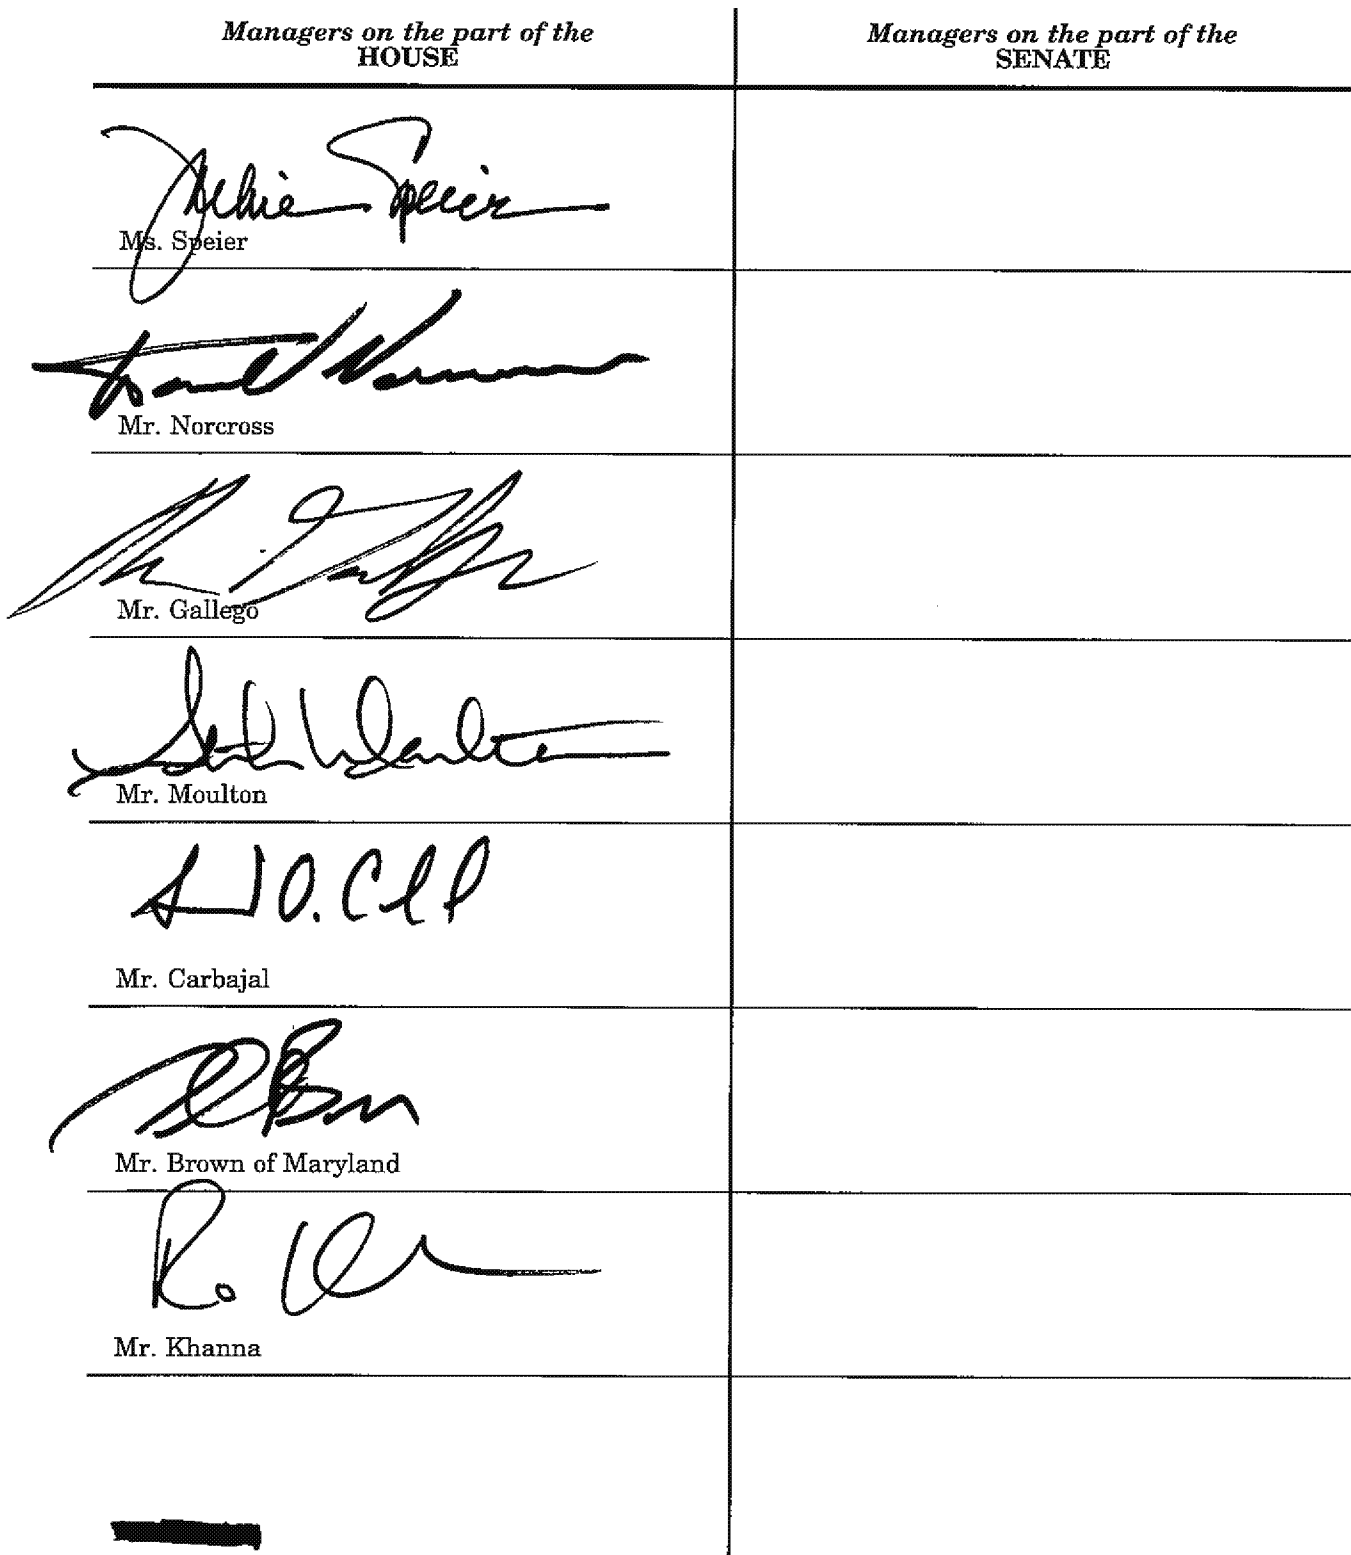 Managers on the part of the
HOUSE
Managers on the part of the
SENATE
Jackie Speier
Ms. Speier
Donald Norcross
Mr. Norcross
Mr. Gallego
Seth Moulton
Mr. Moulton
O. C
Mr. Carbajal
Mr. Brown of Maryland
Ro Kh
Mr. Khanna